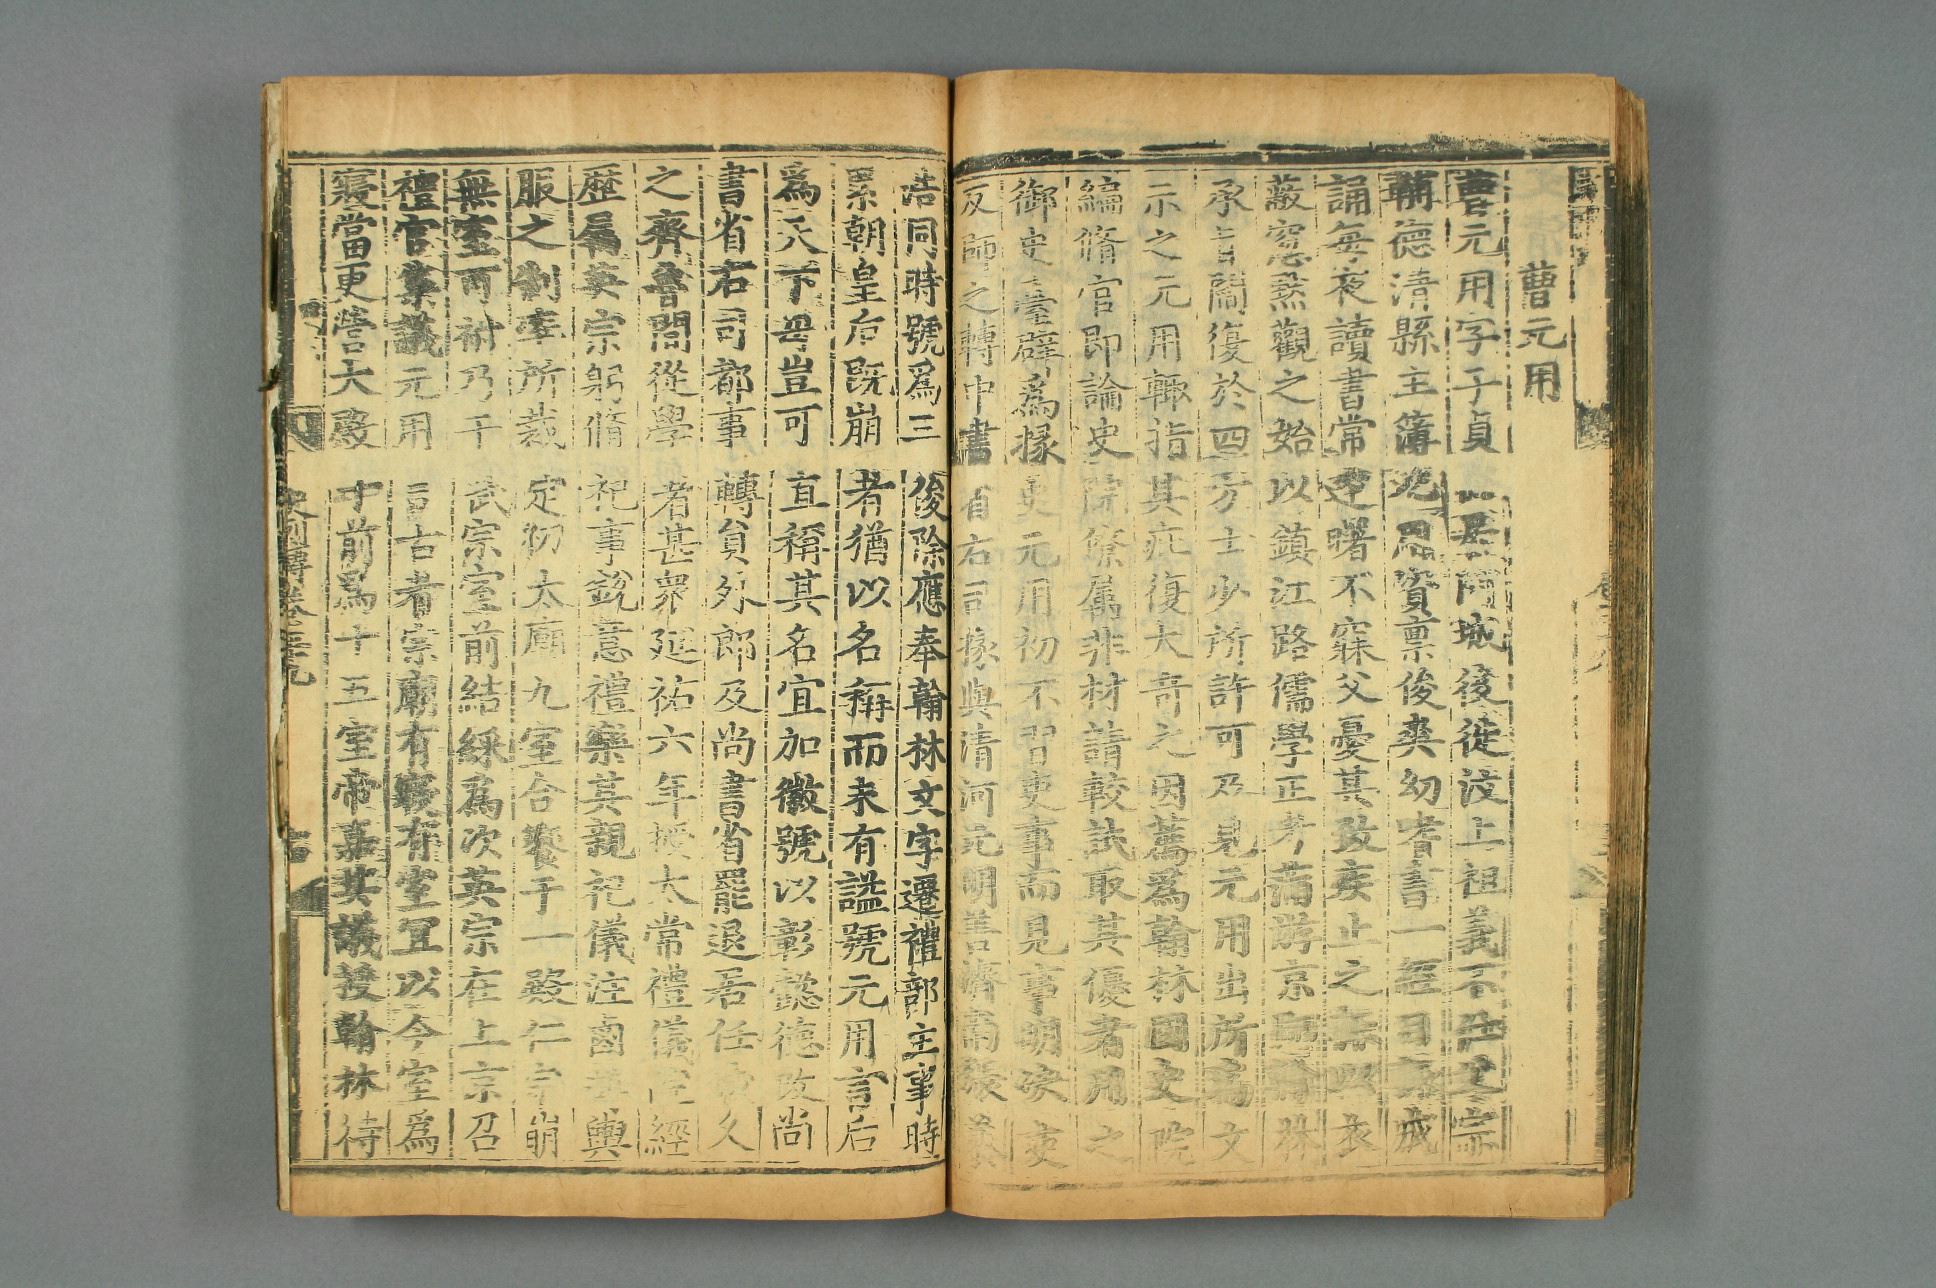 曹元用
曹元用字子貞世居阿城後徙汶上祖義不仕父宗
輔德清縣主簿元用資禀俊爽幼嗜書一經目輒成
誦每夜讀書常達曙不寐父憂其致疾止之輒以衣
蔽窓默觀之始以鎮江路儒學正考滿游京師翰林
承旨閻復於四方士少所許可及見元用出所為文
示之元用輒指其疵復大奇之因薦為翰林國史院
編脩官即論史院僚屬非材請較試取其優者用之
御史臺辟為掾史元用初不習吏事而見事明决吏
反師之轉中書省右司掾與清河元明善濟南張養
浩同時號為三後除應奉翰林文字遷禮部主事時
累朝皇后既崩者猶以名稱而未有謚號元用言后
為天下母豈可直稱其名宜加徽號以彰懿德改尚
書省右司都事轉員外郎及尚書省罷退居任城久
之齊魯間從學者甚衆延祐六年授太常禮儀院經
歷屬英宗躬脩祀事銳意禮樂其親祀儀注鹵簿輿
服之制率所裁定初太廟九室合饗于一殿仁宗崩
無室可祔乃于武宗室前結綵為次英宗在上京召
禮官集議元用言古者宗廟有寢有室宜以今室為
寢當更營大殿于前為十五室帝嘉其議授翰林待
史列傳卷五十九